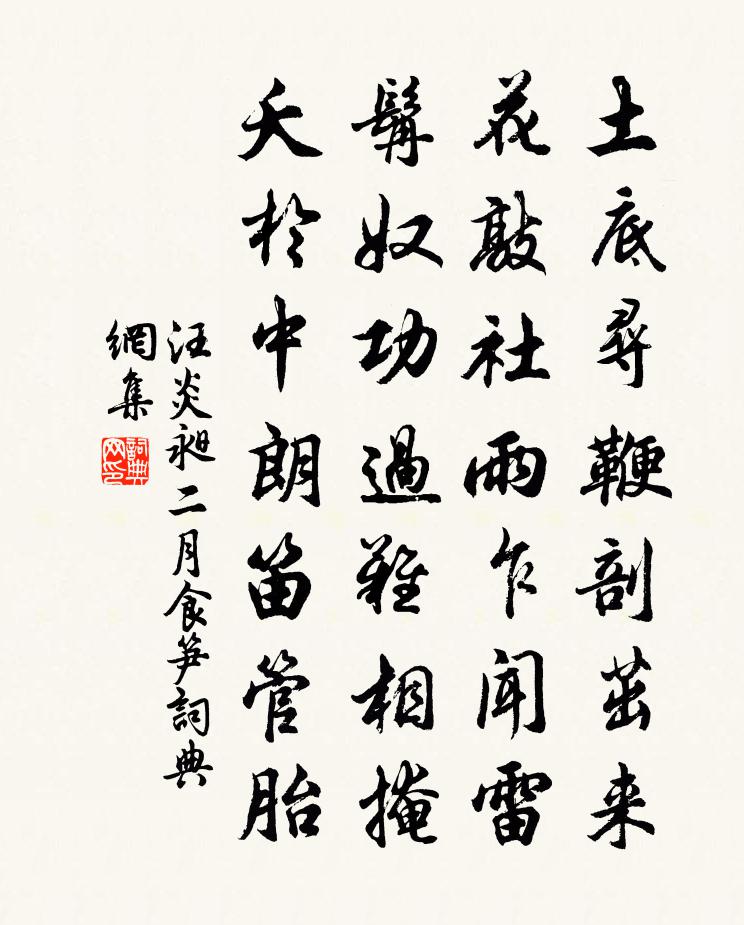 土底尋鞭剖茁来
花敲社雨乍闻雷
髯奴功過難相掩
夭於中朗笛管胎
汪炎昶二月食笋詞典
網集
詞典网印